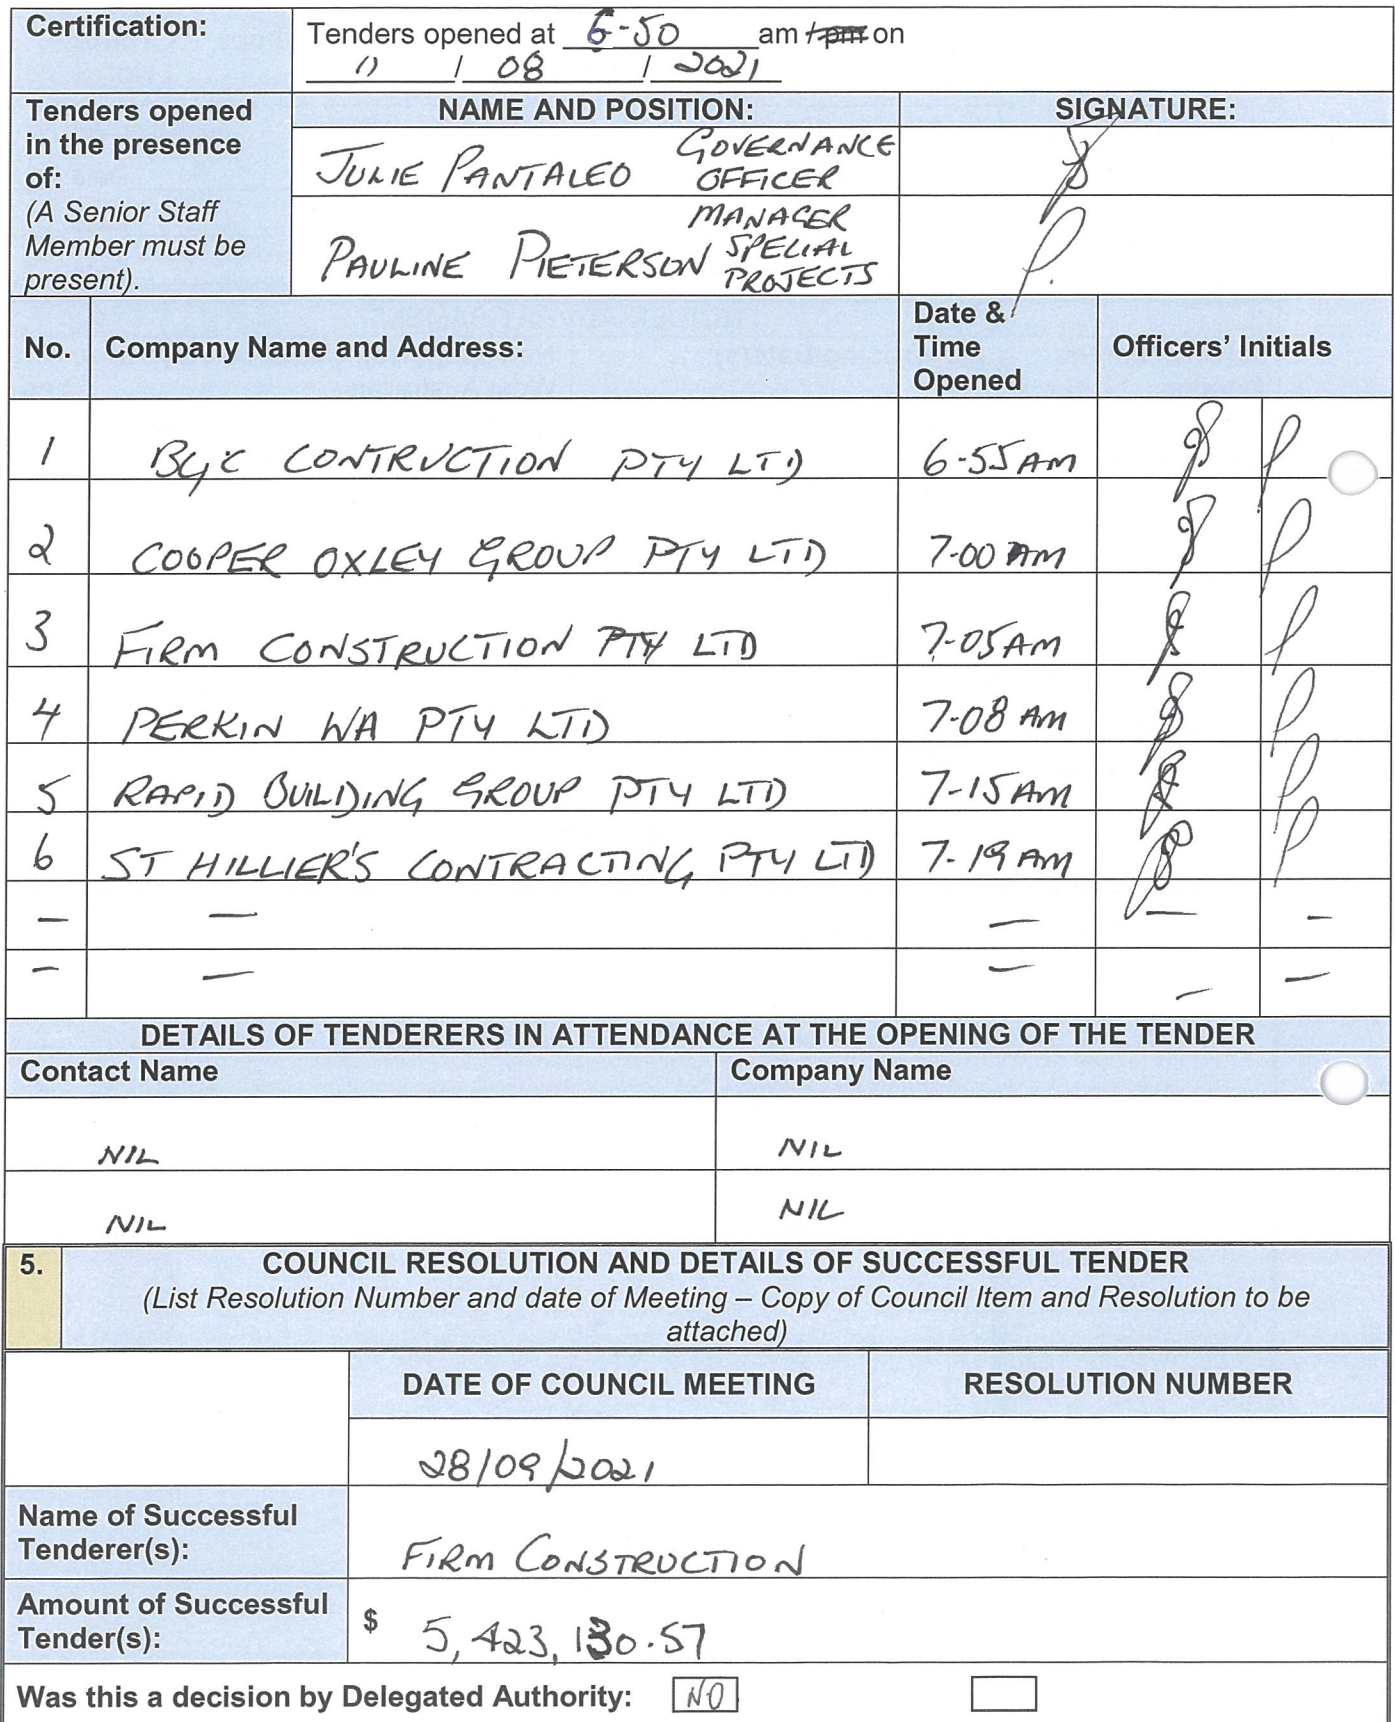 Certification:
Tenders opened at 6-50 am / pm on
11 / 08 / 2021
Tenders opened
in the presence
of:
(A Senior Staff
Member must be
present).
NAME AND POSITION:
SIGNATURE:
JULIE PANTALEO GOVERNANCE
OFFICER
PAULINE PIETERSON MANAGER
SPECIAL
PROJECTS
No.
Company Name and Address:
Date &
Time
Opened
Officers' Initials
1 BGC CONTRUCTION PTY LTD 6-55 AM
2 COOPER OXLEY GROUP PTY LTD 7-00 AM
3 FIRM CONSTRUCTION PTY LTD 7-05 AM
4 PERKIN WA PTY LTD 7-08 AM
5 RAPID BUILDING GROUP PTY LTD 7-15 AM
6 ST HILLIER'S CONTRACTING PTY LTD 7-19 AM
— — — — —
— — — — —
DETAILS OF TENDERERS IN ATTENDANCE AT THE OPENING OF THE TENDER
Contact Name Company Name
NIL NIL
NIL NIL
5. COUNCIL RESOLUTION AND DETAILS OF SUCCESSFUL TENDER
(List Resolution Number and date of Meeting – Copy of Council Item and Resolution to be
attached)
DATE OF COUNCIL MEETING RESOLUTION NUMBER
28/09/2021
Name of Successful
Tenderer(s):
FIRM CONSTRUCTION
Amount of Successful
Tender(s):
$ 5,423,130.57
Was this a decision by Delegated Authority: NO